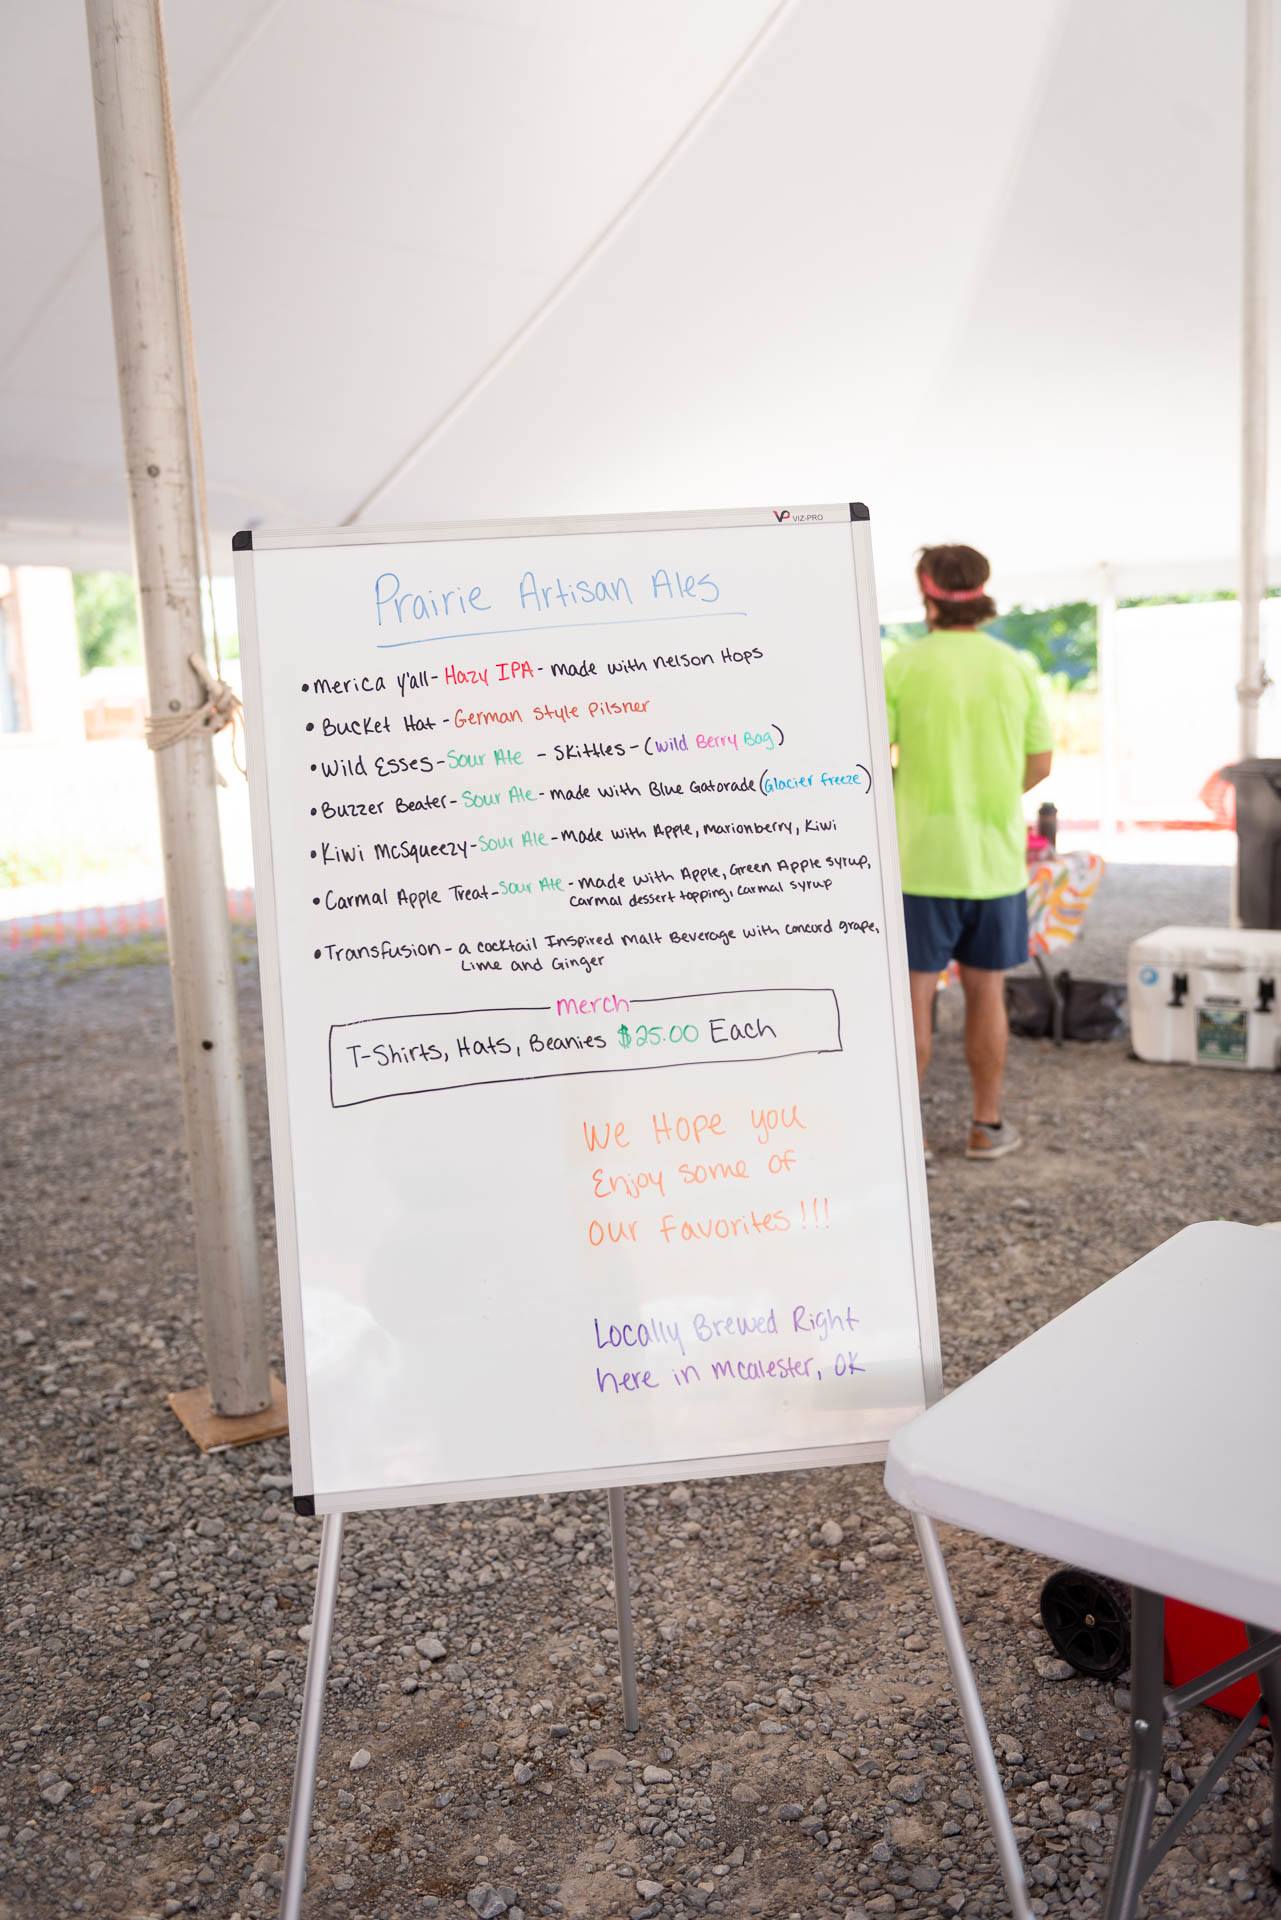 VP VIZ-PRO
Prairie Artisan Ales
• Merica y'all - Hazy IPA - made with Nelson Hops
• Bucket Hat - German Style Pilsner
• Wild Esses - Sour Ale - Skittles - (Wild Berry Bag)
• Buzzer Beater - Sour Ale - made with Blue Gatorade (Glacier Freeze)
• Kiwi McSqueezy - Sour Ale - Made with Apple, Marionberry, Kiwi
• Carmal Apple Treat - Sour Ale - made with Apple, Green Apple syrup,
Carmal dessert topping, Carmal syrup
• Transfusion - a cocktail Inspired Malt Beverage with concord grape,
Lime and Ginger
merch
T-Shirts, Hats, Beanies $25.00 Each
We Hope you
Enjoy some of
our Favorites!!!
Locally Brewed Right
here in mcalester, OK